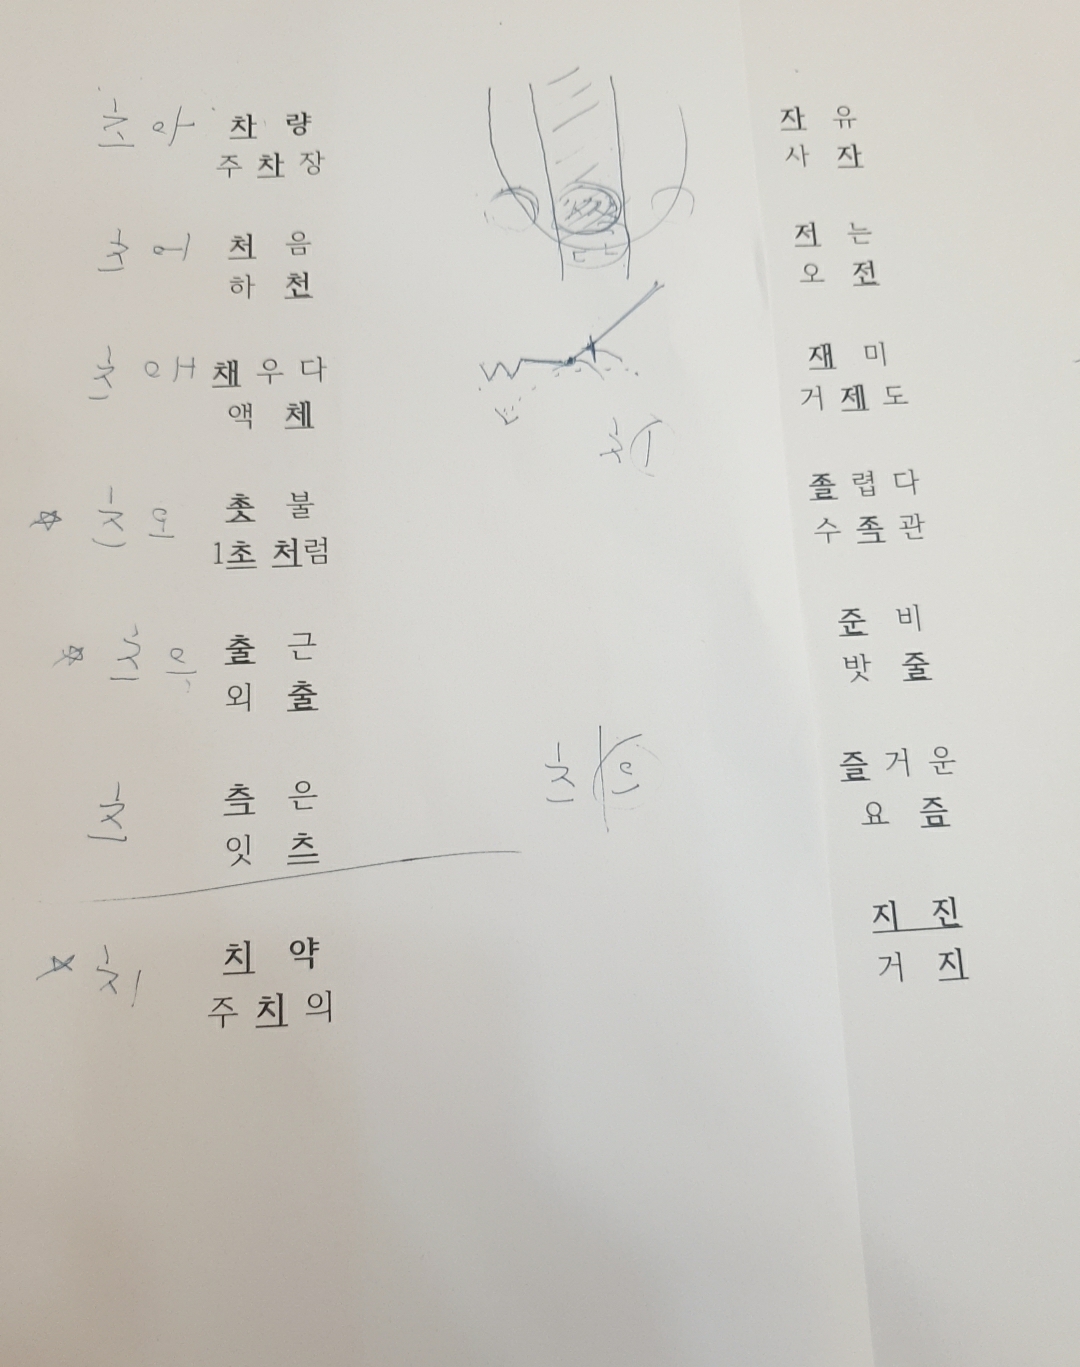 츠 아 차 량
주 차 장
츠 어 처 음
하 천
츠 애 채 우 다
액 체
츠 오 촛 불
1초 처럼
츠 우 출 근
외 출
츠 측 은
잇 츠
치 치 약
주 치 의
츠 으
자 유
사 자
저 는
오 전
재 미
거 제 도
졸 렵 다
수 족 관
준 비
밧 줄
즐 거 운
요 즘
지 진
거 지